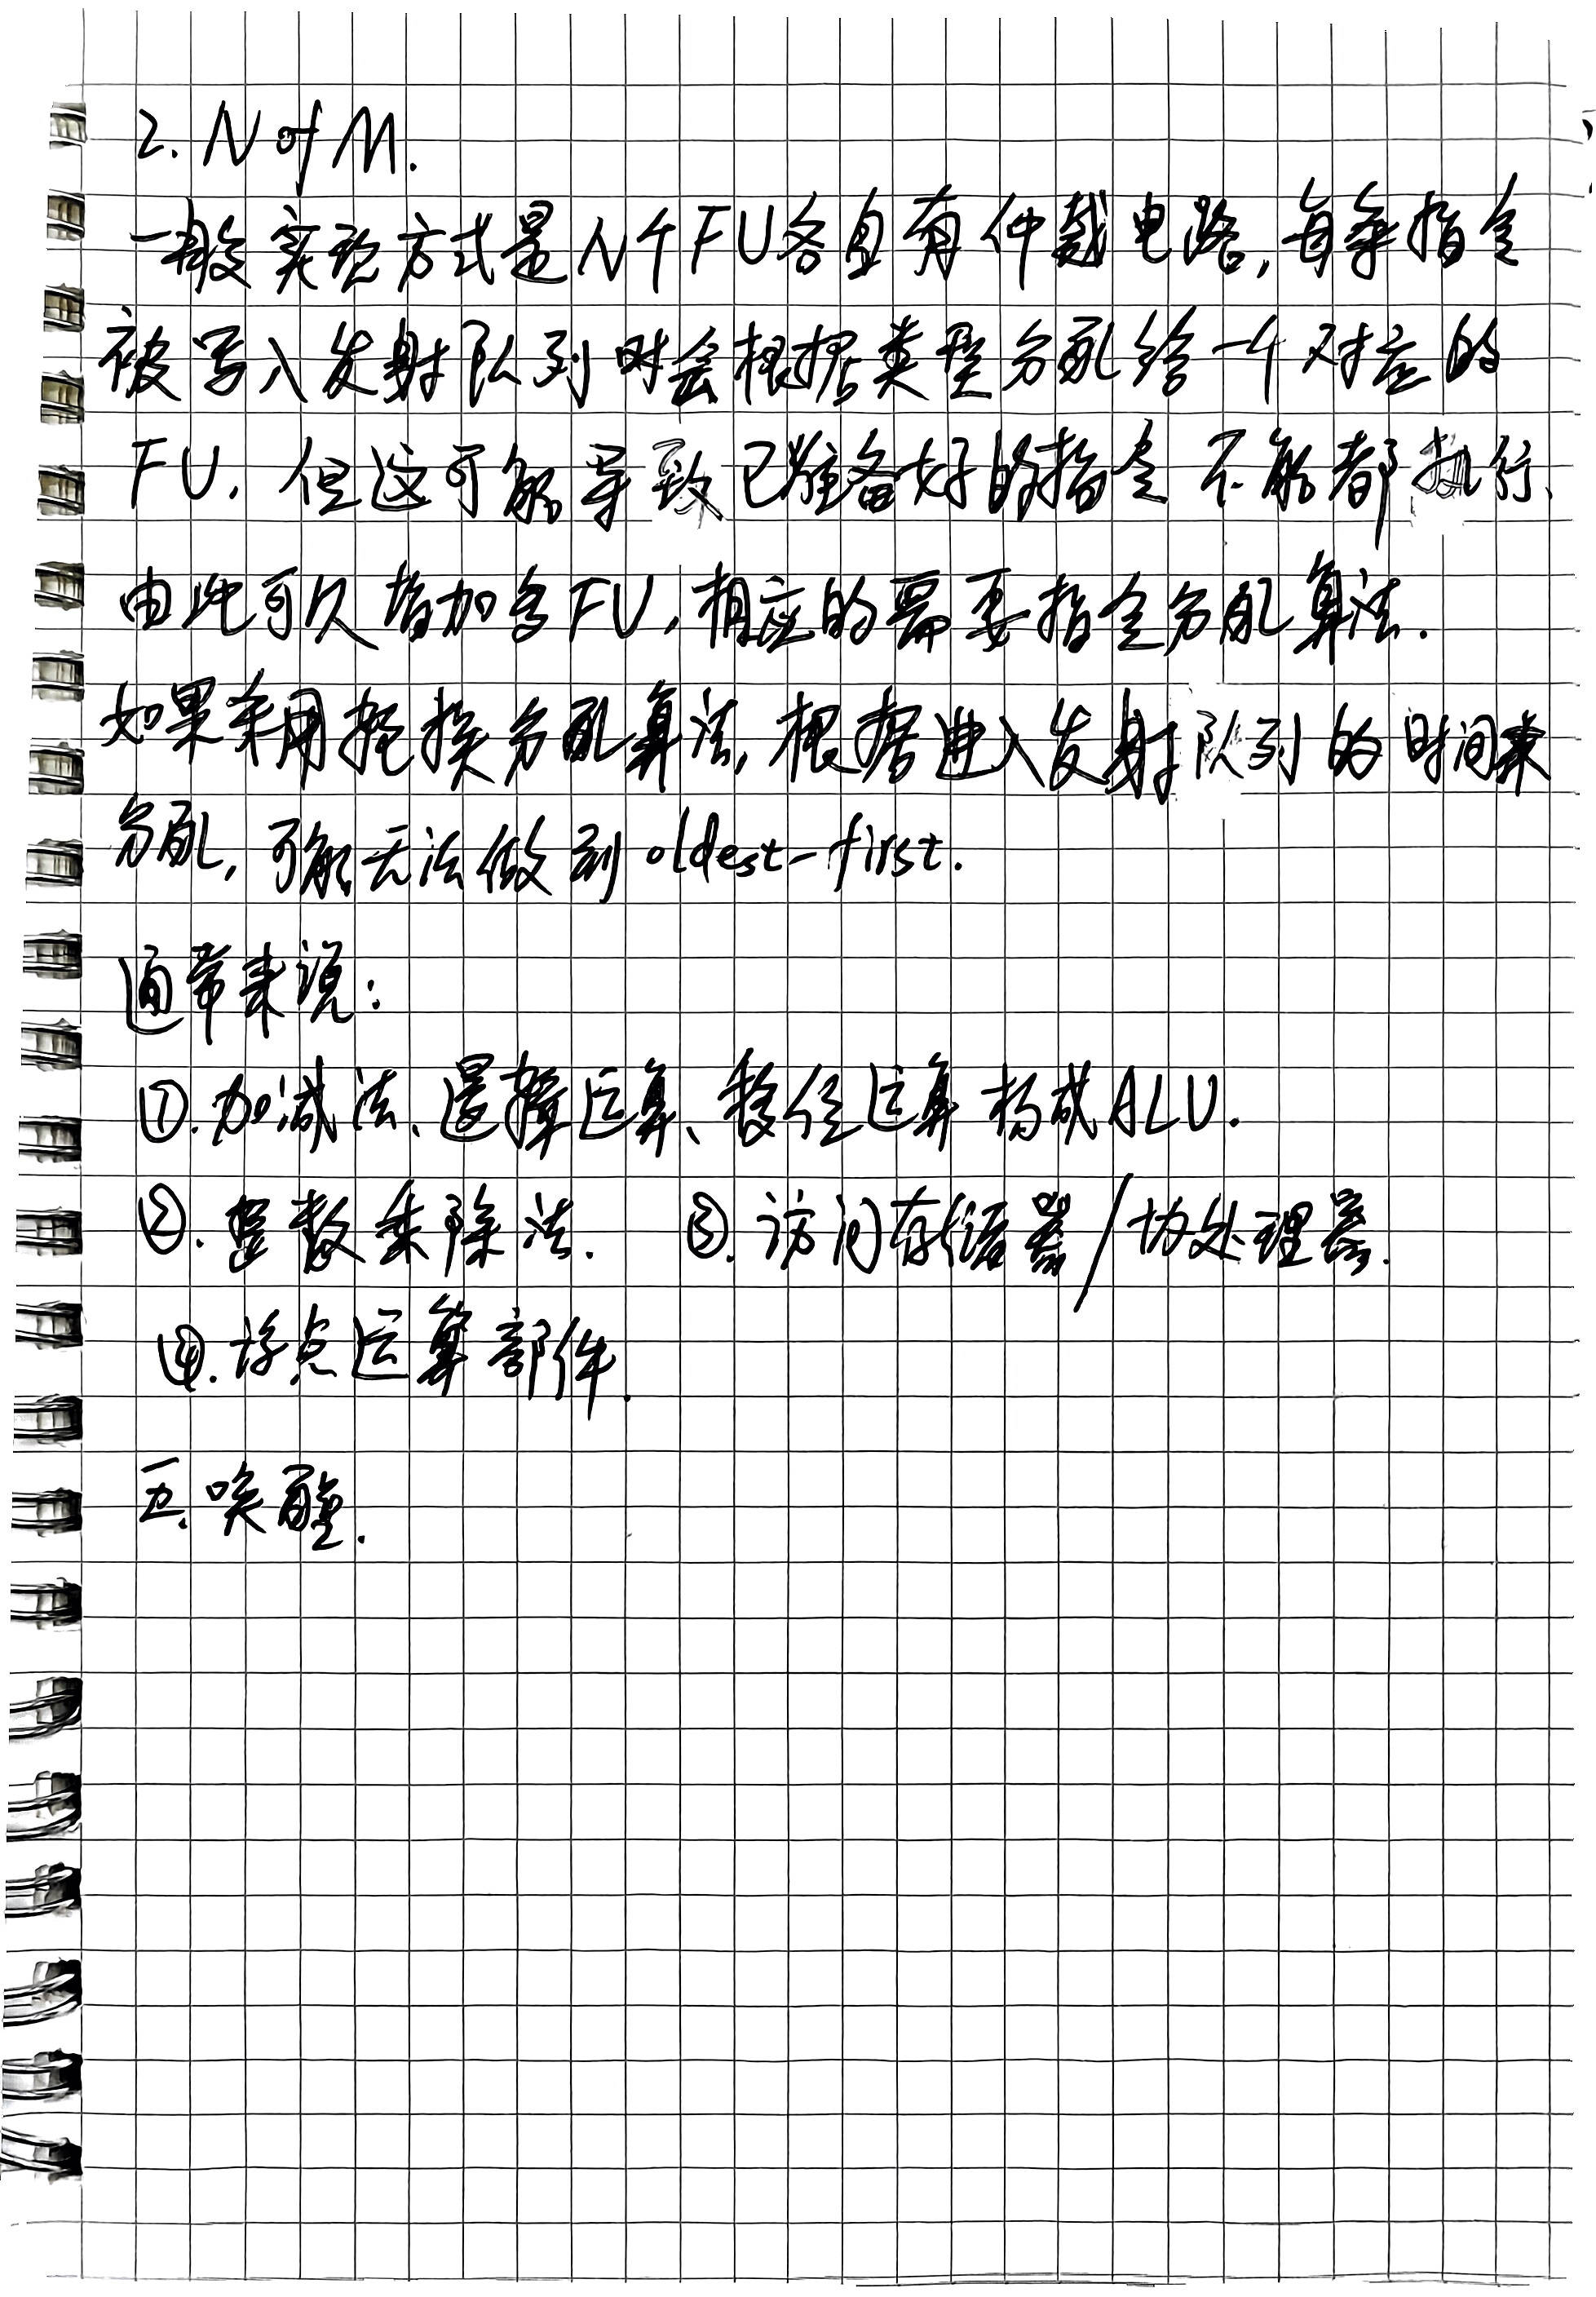 2. N of M.
一般实现方式是N个FU各自有仲裁电路,每条指令
被写入发射队列时会根据类型分配给一个对应的
FU. 但这可能导致已准备好的指令不能都执行.
由此可以增加多FU,相应的需要指令分配算法.
如果采用轮换分配算法,根据进入发射队列的时间来
分配,可能无法做到oldest-first.
通常来说:
①.加减法、逻辑运算、移位运算构成ALU.
②.整数乘除法. ③.访问存储器/协处理器.
④.浮点运算部件.
五.唤醒.